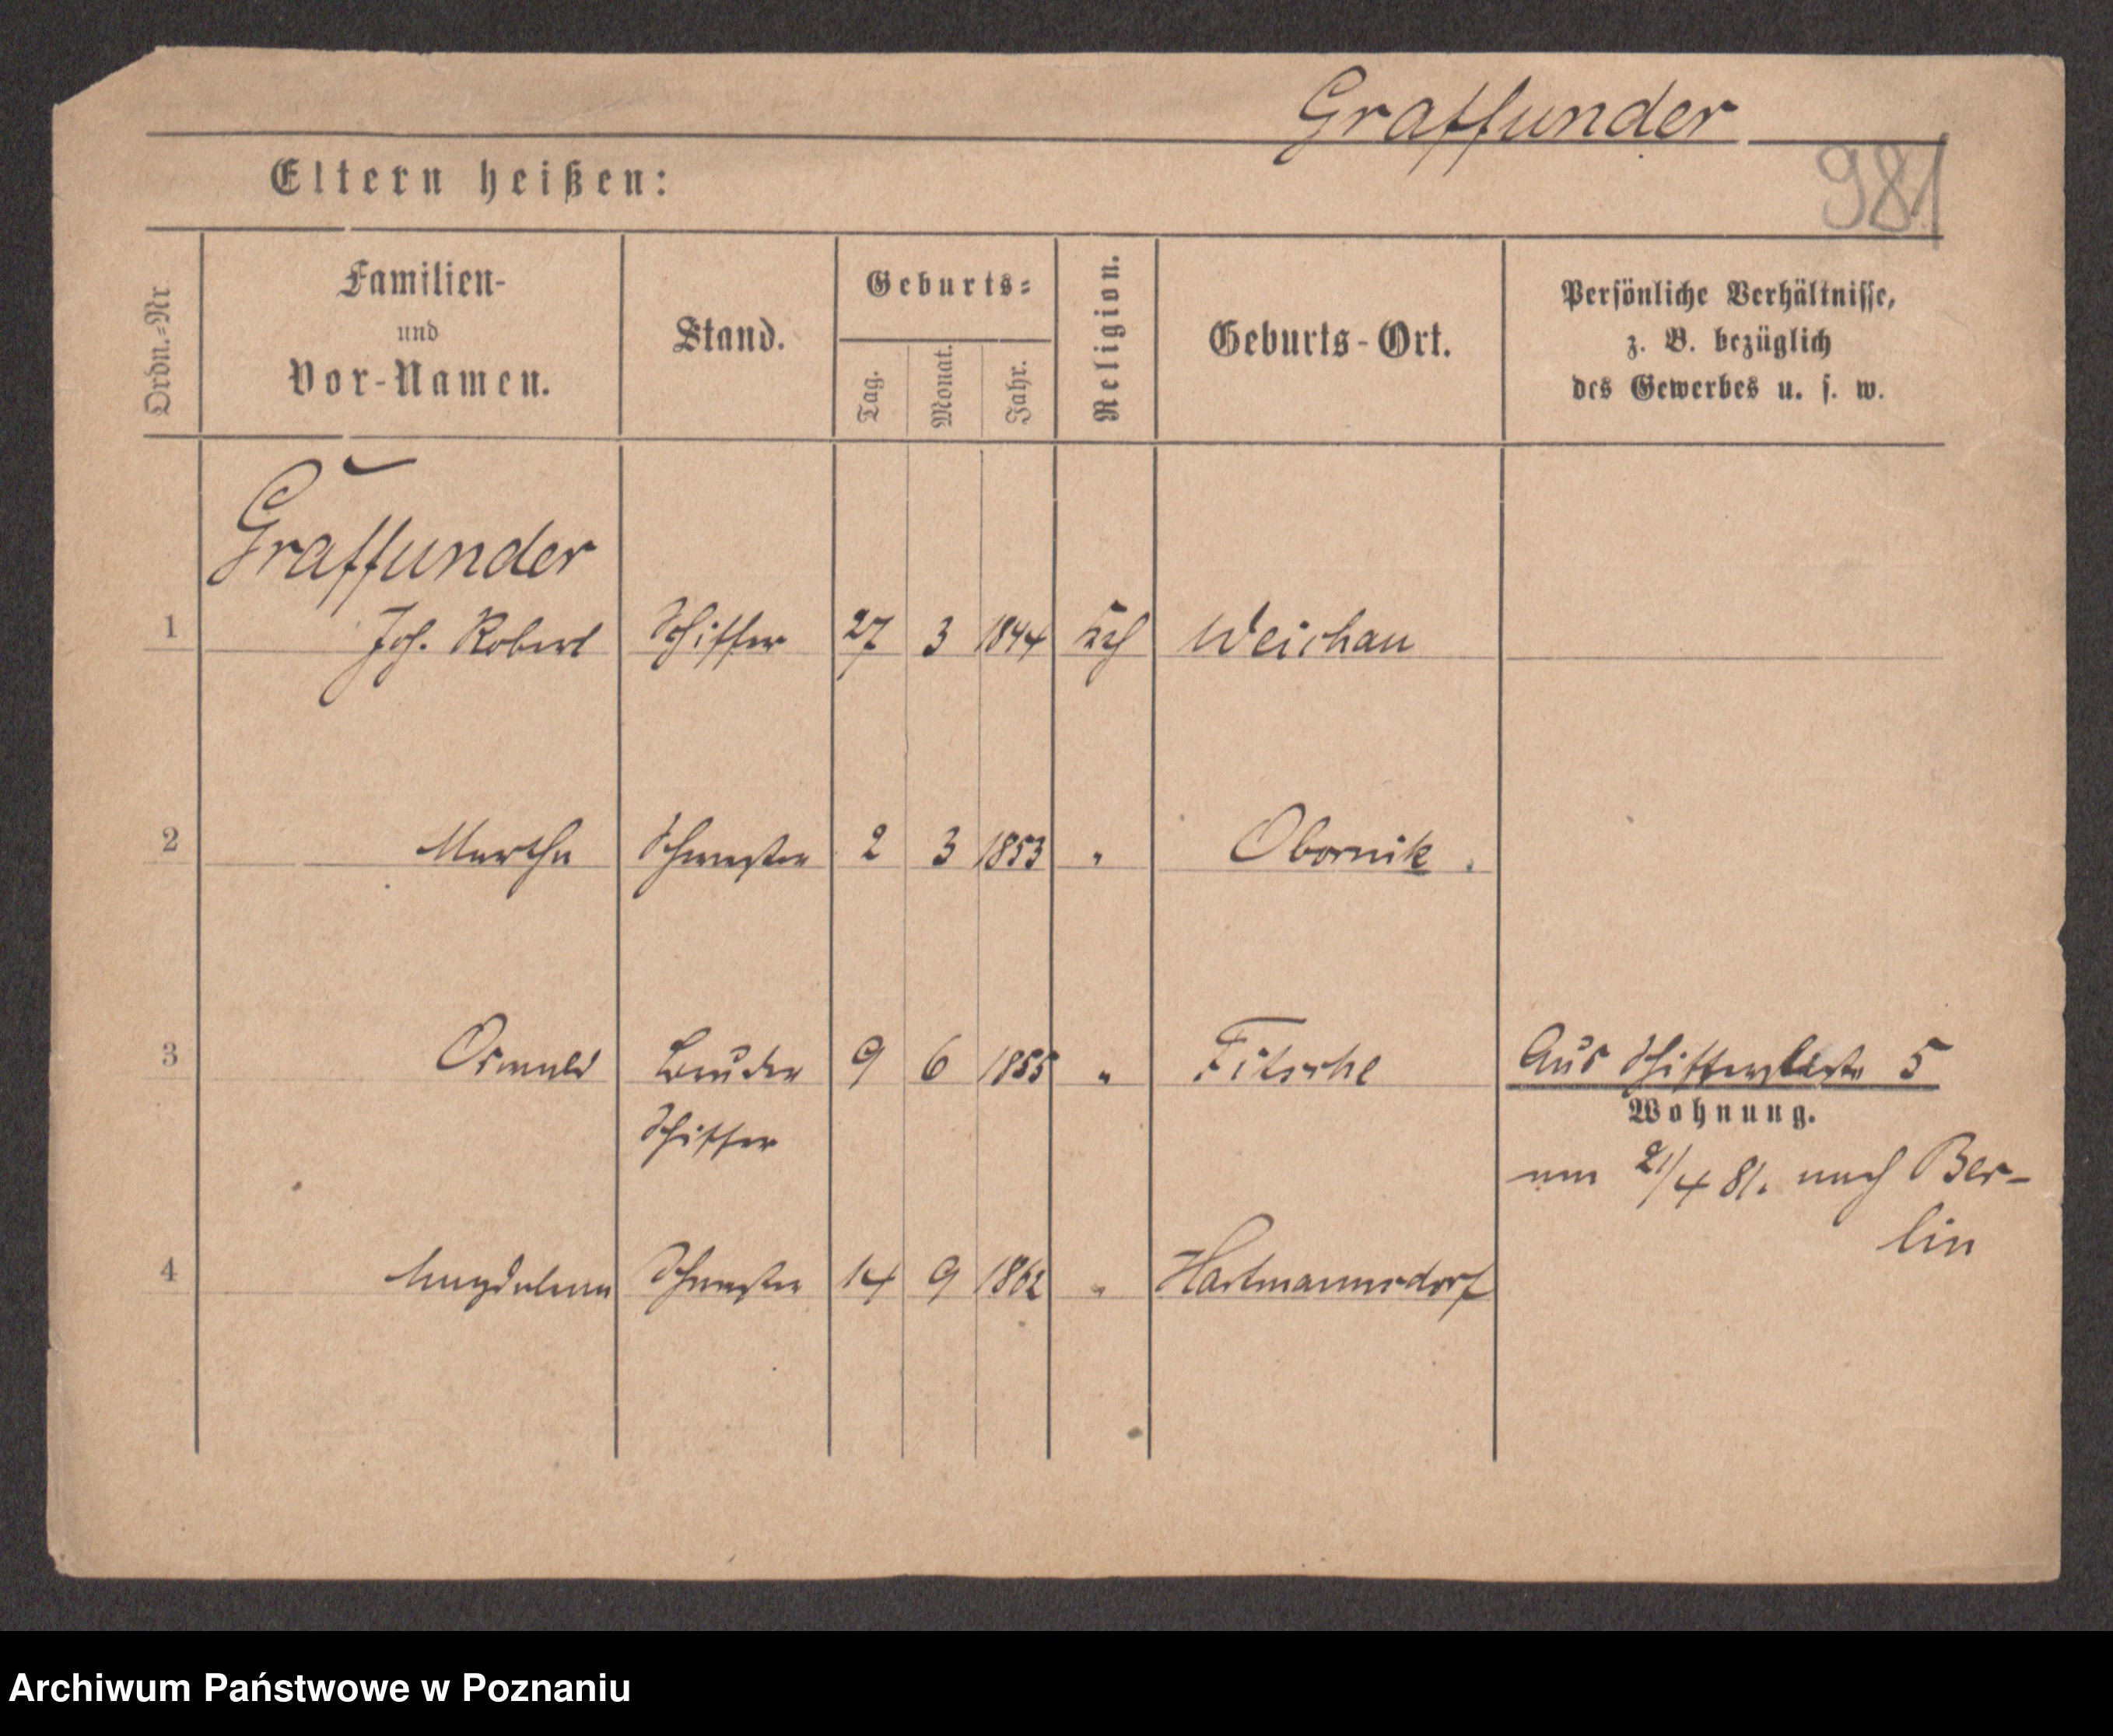 Graffunder
981
Eltern heißen:
Ordn.=Nr
Familien-
und
Vor-Namen.
Stand.
Geburts=
Tag.
Monat.
Jahr.
Religion.
Geburts-Ort.
Persönliche Verhältnisse,
z. B. bezüglich
des Gewerbes u. s. w.
Graffunder
1 Joh. Robert Schiffer 27 3 1844 Weichau
2 Martha Schwester 2 3 1853 " Obornik.
3 Oswald Bruder 9 6 1855 " Fitsche Aus Schifferliste 5
Schiffer
Wohnung.
21/4 81. nach Ber-
lin
4 Magdalena Schwester 14 9 1862 " Hartmannsdorf
Archiwum Państwowe w Poznaniu